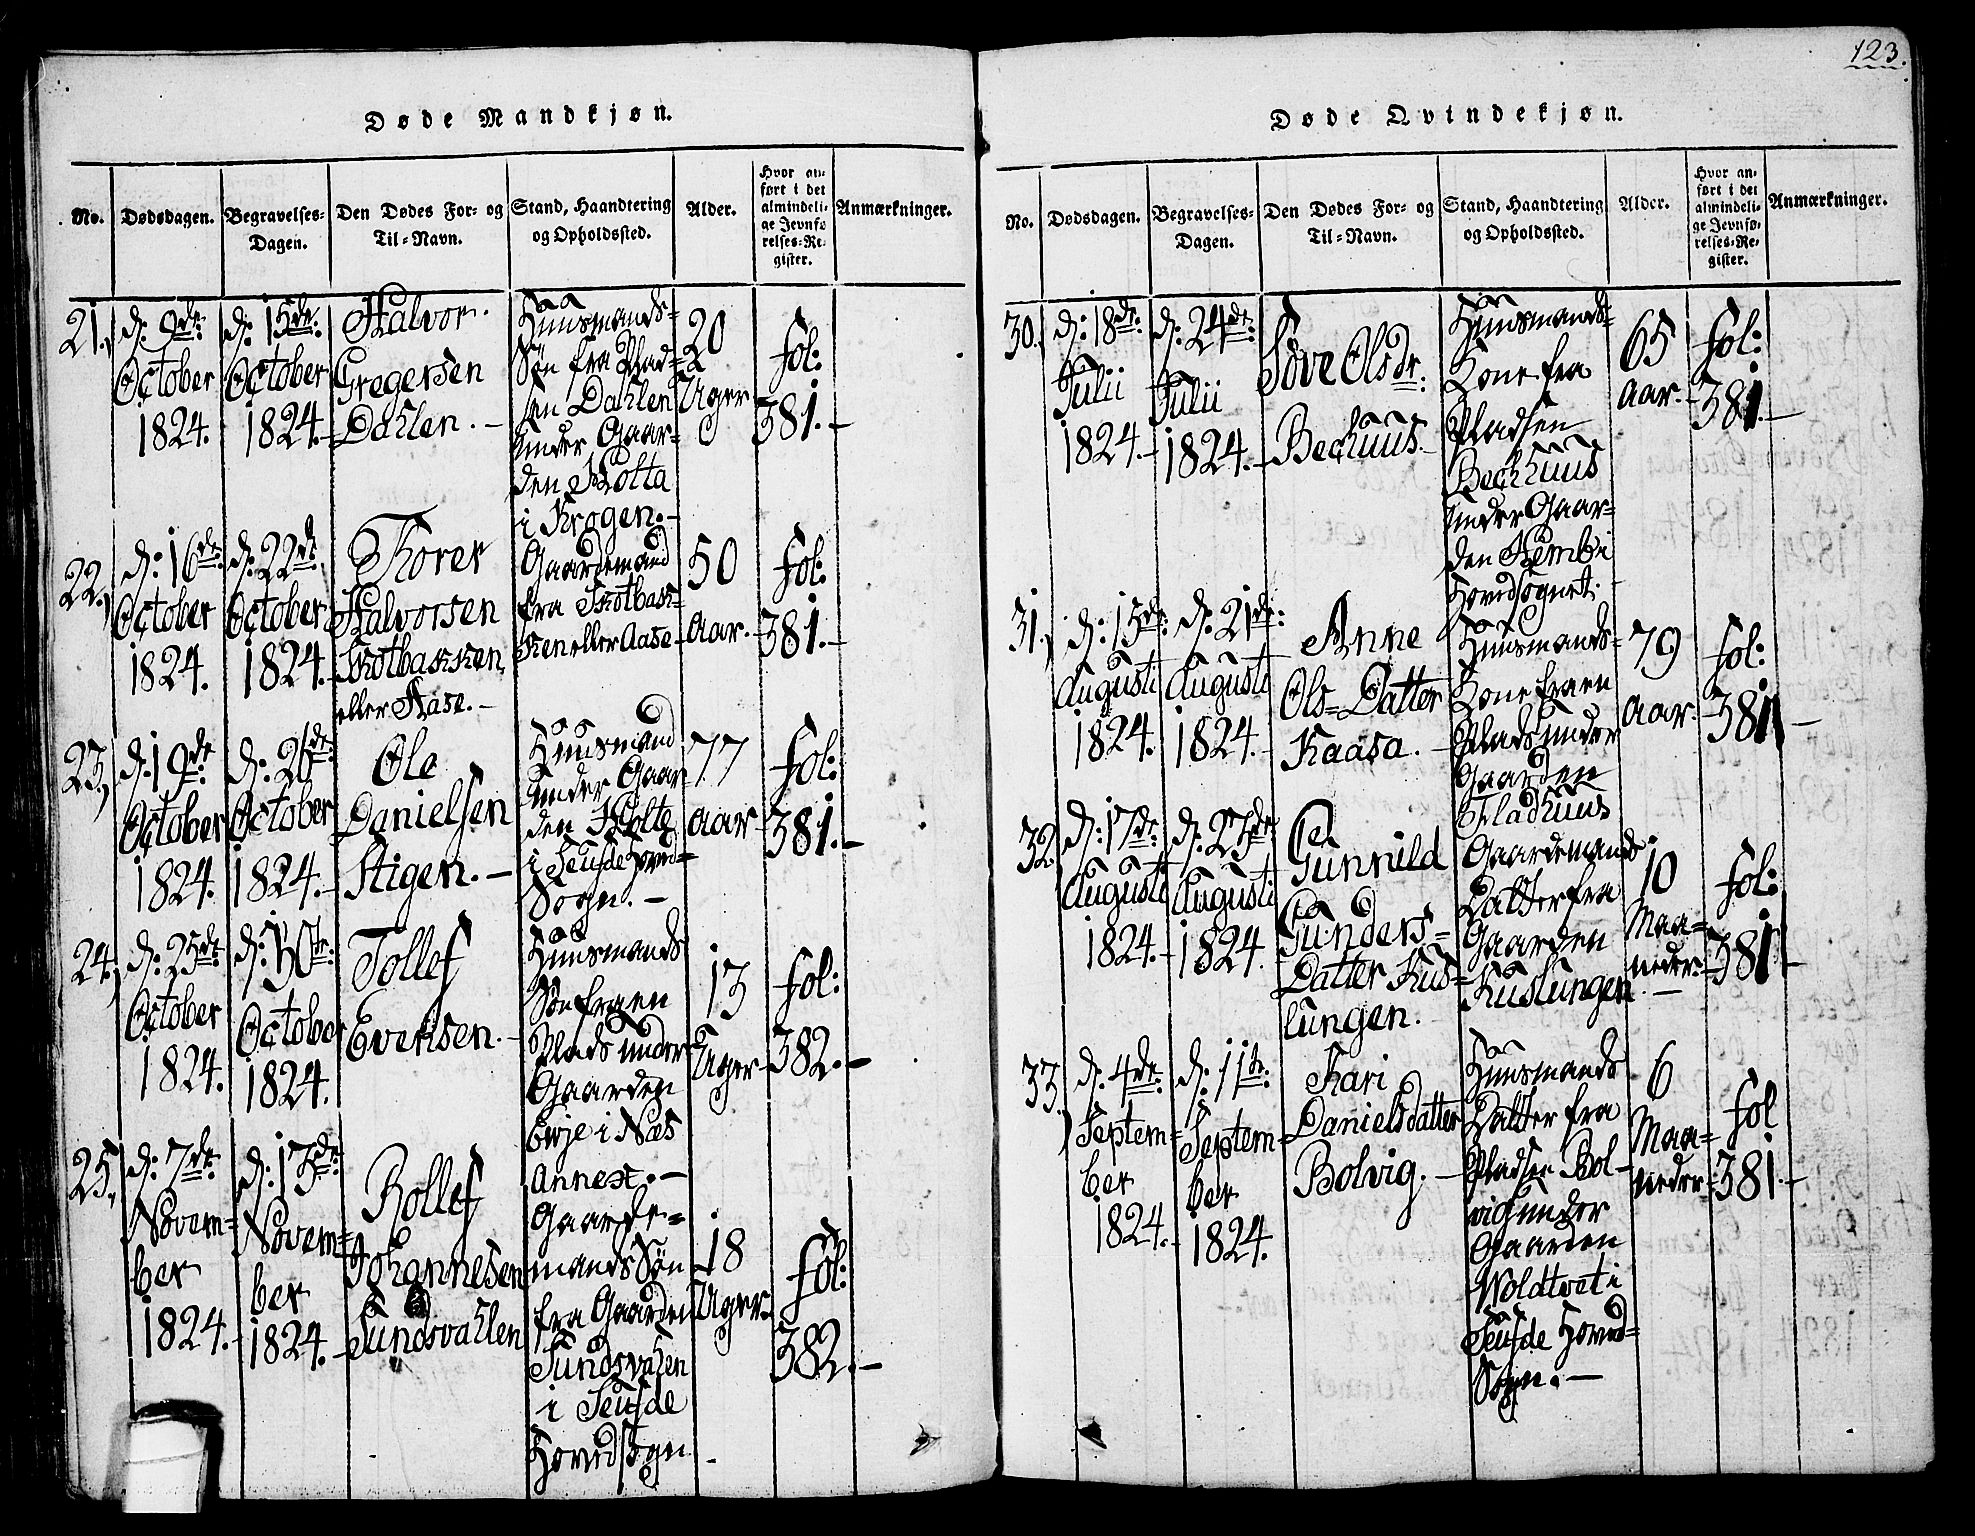 123.
Døde Mandkjøn.
No. Dødsdagen. Begravelses-Dagen. Den Dødes For- og Til-Navn. Stand, Haandtering og Opholdssted. Alder. Hvor anført i det almindelige Jevnførelses-Register. Anmærkninger.
21.
d: 9de:
October
1824.
d: 15de:
October
1824.-
Halvor
Gregersen
Dahlen. -
Huusmands-
Søn fra Plad-
sen Dahlen
under Gaar-
den Holta
i Krogen. -
20
Uger
fol:
381. -
22.
d: 16de:
October
1824.
d: 22de
October
1824.-
Thorer
Halvorsen
Skotbakken
eller Aase. -
Gaardemand
fra Skotbak-
ken eller Aase-
50
Aar. -
fol:
381. -
23.
d: 19de
October
1824.
d: 26de:
October
1824.-
Ole
Danielsen
Stigen. -
Huusmand
under Gaar
den Holte
i Seufde Hoved-
Sogn. -
77
Aar
fol:
381. -
24.
d: 25de
October
1824.
d: 30te:
October
1824.
Tollef
Evensen. -
Huusmands
Søn fra en
Plads under
Gaarden
i Næs
Annext. -
13
Uger
fol:
382. -
25.
d: 7de
Novem-
ber
1824. -
d: 13de:
Novem-
ber
1824. -
Rollef
Johannesen
Sundsvahlen
Gaarde-
mands Søn
fra Gaarden
Sundsvahlen
i Seufde
Hovedsogn
18
Uger
fol:
382. -
Døde Qvindekjøn.
No. Dødsdagen. Begravelses-Dagen. Den Dødes For- og Til-Navn. Stand, Haandtering og Opholdssted. Alder. Hvor anført i det almindelige Jevnførelses-Register. Anmærkninger.
30.
d: 18de:
Julii
1824. -
d: 24de
Julii
1824. -
Søve Olsdr.
Bechuus. -
Huusmands-
Kone fra
Pladsen
Bechhuus
under Gaar-
den i
Hovedsognet.
65
Aar. -
fol:
381. -
31.
d: 15de:
Augusti
1824.
d: 21de:
Augusti
1824. -
Anne
Ols-Datter
Kaasa. -
Huusmands-
Kone fra en
Plads under
Gaarden
Fladhuus
79
Aar. -
fol:
381 -
32.
d: 17de:
Augusti
1824. -
d: 23de:
Augusti
1824.
Gunnild
Gunders-
Datter Kus-
lungen.
Gaardemands
Datter fra
Gaarden
Kuslungen -
10
Maa-
neder. -
fol:
381 -
33.
d: 4de:
Septem-
ber
1824. -
d: 11te:
Septem-
ber
1824.
Kari
Danielsdatter
Bolvig. -
Huusmands
Datter fra
Pladsen Bol-
vig under
Gaarden
Woldtvet i
Seufde Hoved-
Sogn. -
6
Maa-
neder -
fol
381. -